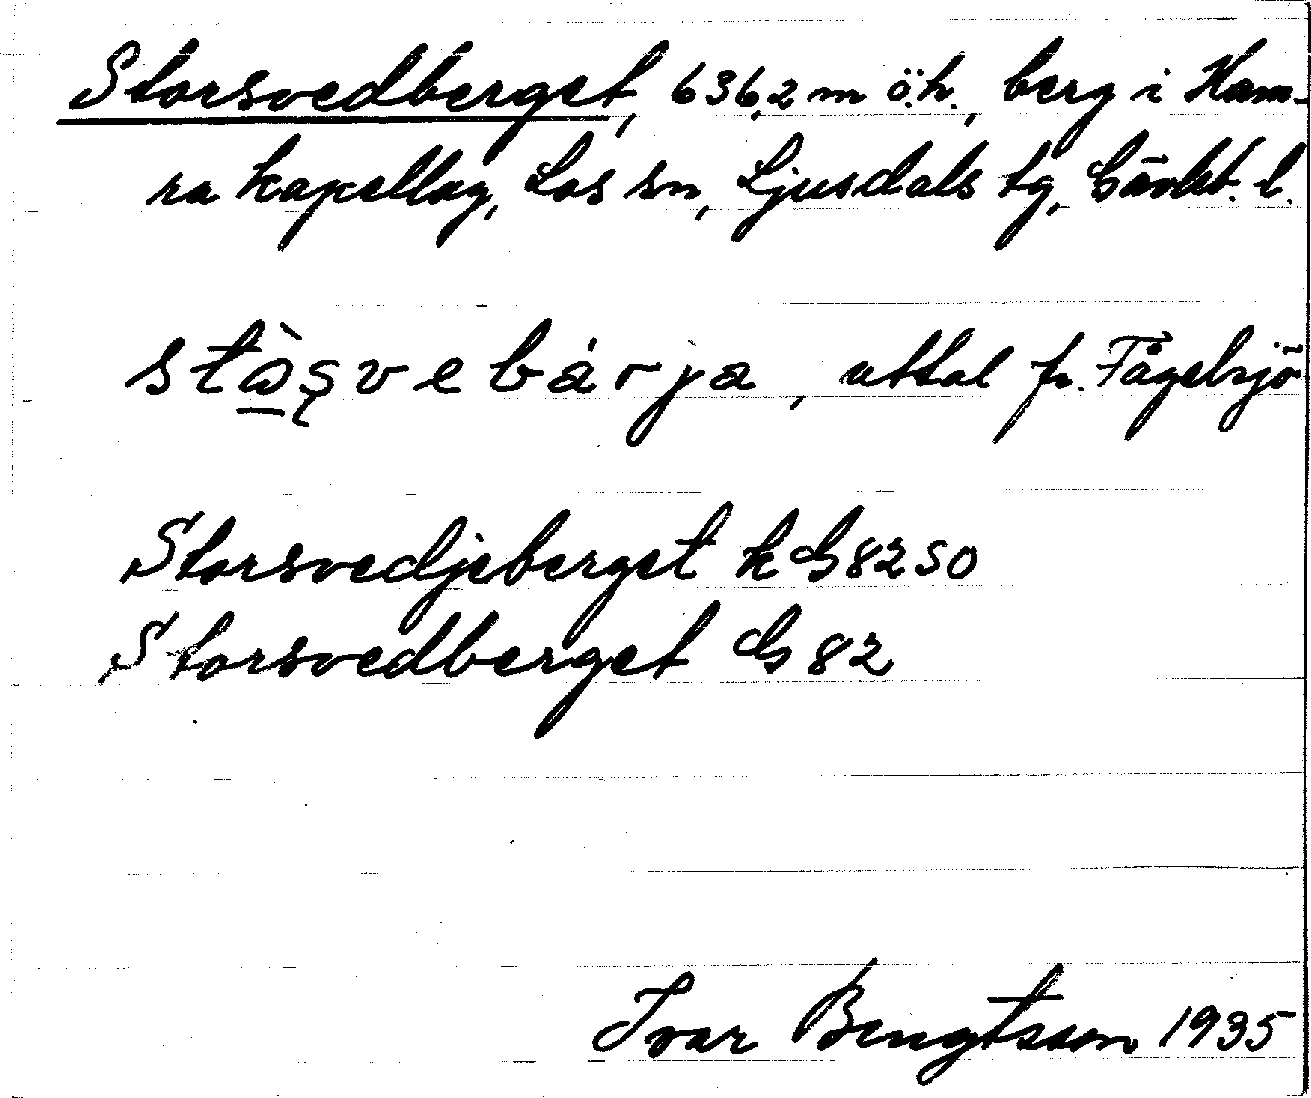 Storsvedberget, 636,2 m ö.h., berg i Ham-
ra kapellag, Los sn, Ljusdals tg, Gävleb. l.
stɷ̀şvebárja, uttal fr. Fågelsjö
Storsvedjeberget k G 82 SO
Storsvedberget G 82
Ivar Bengtsson 1935